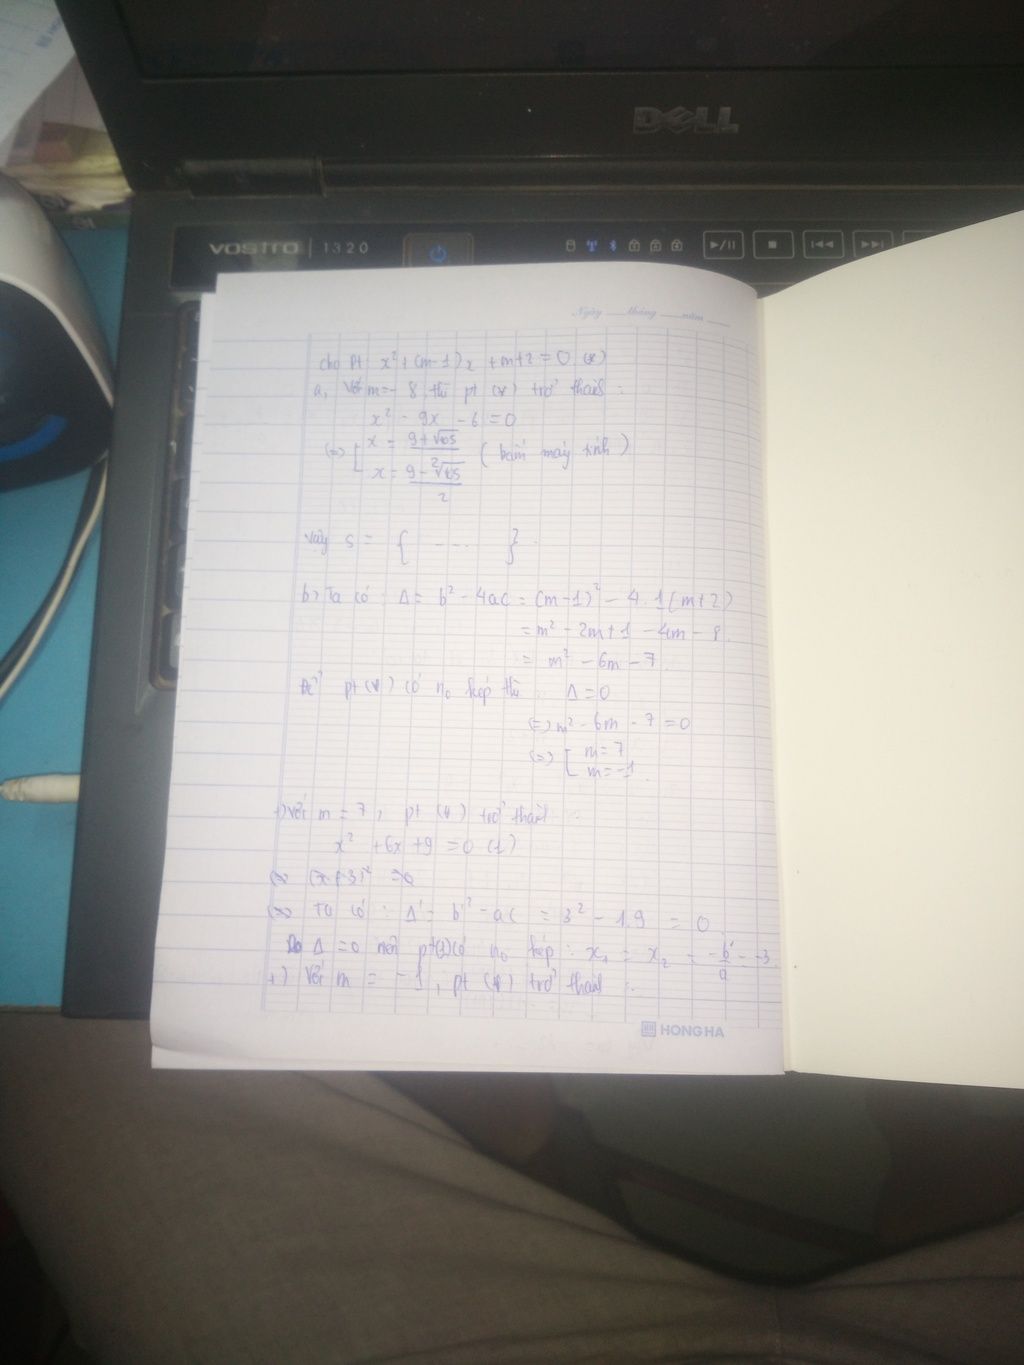 DELL
VOSTRO | 1320
Ngày tháng năm
cho pt x² + (m-1)x + m+2 = 0 (*)
a, Với m = - 8 thì pt (*) trở thành :
x² - 9x - 6 = 0
(=) [ x = 9+√105 / 2 ( bấm máy tính )
x = 9-√105 / 2
Vậy S = { --- } .
b> Ta có : Δ = b² - 4ac = (m-1)² - 4.1(m+2)
= m² - 2m + 1 - 4m - 8.
= m² - 6m - 7.
Để pt (*) có n₀ kép thì : Δ = 0
(=) m² - 6m - 7 = 0
(=) [ m = 7
m = -1.
+) Với m = 7, pt (*) trở thành :
x² + 6x + 9 = 0 (1)
(=) (x+3)² = 0
(=) Ta có : Δ' = b'² - ac = 3² - 1.9 = 0
Do Δ' = 0 nên pt(1) có n₀ kép : x₁ = x₂ = -b'/a = -3.
+) Với m = -1, pt (*) trở thành :
HONG HA